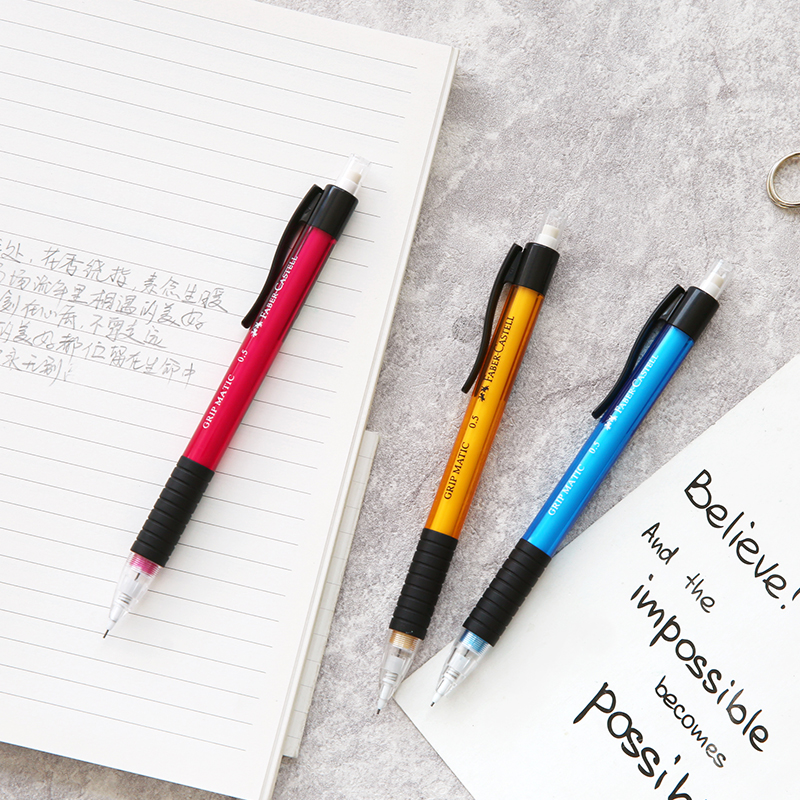 处，花香绕指，素念生暖
流年里相遇的美好
刻在心底，不曾走远
的美好都位留在生命中
永无别！
GRIP MATIC 0.5 FABER-CASTELL
GRIP MATIC 0.5 FABER-CASTELL
GRIP MATIC 0.5 FABER-CASTELL
Believe!
And the
impossible
becomes
possibl